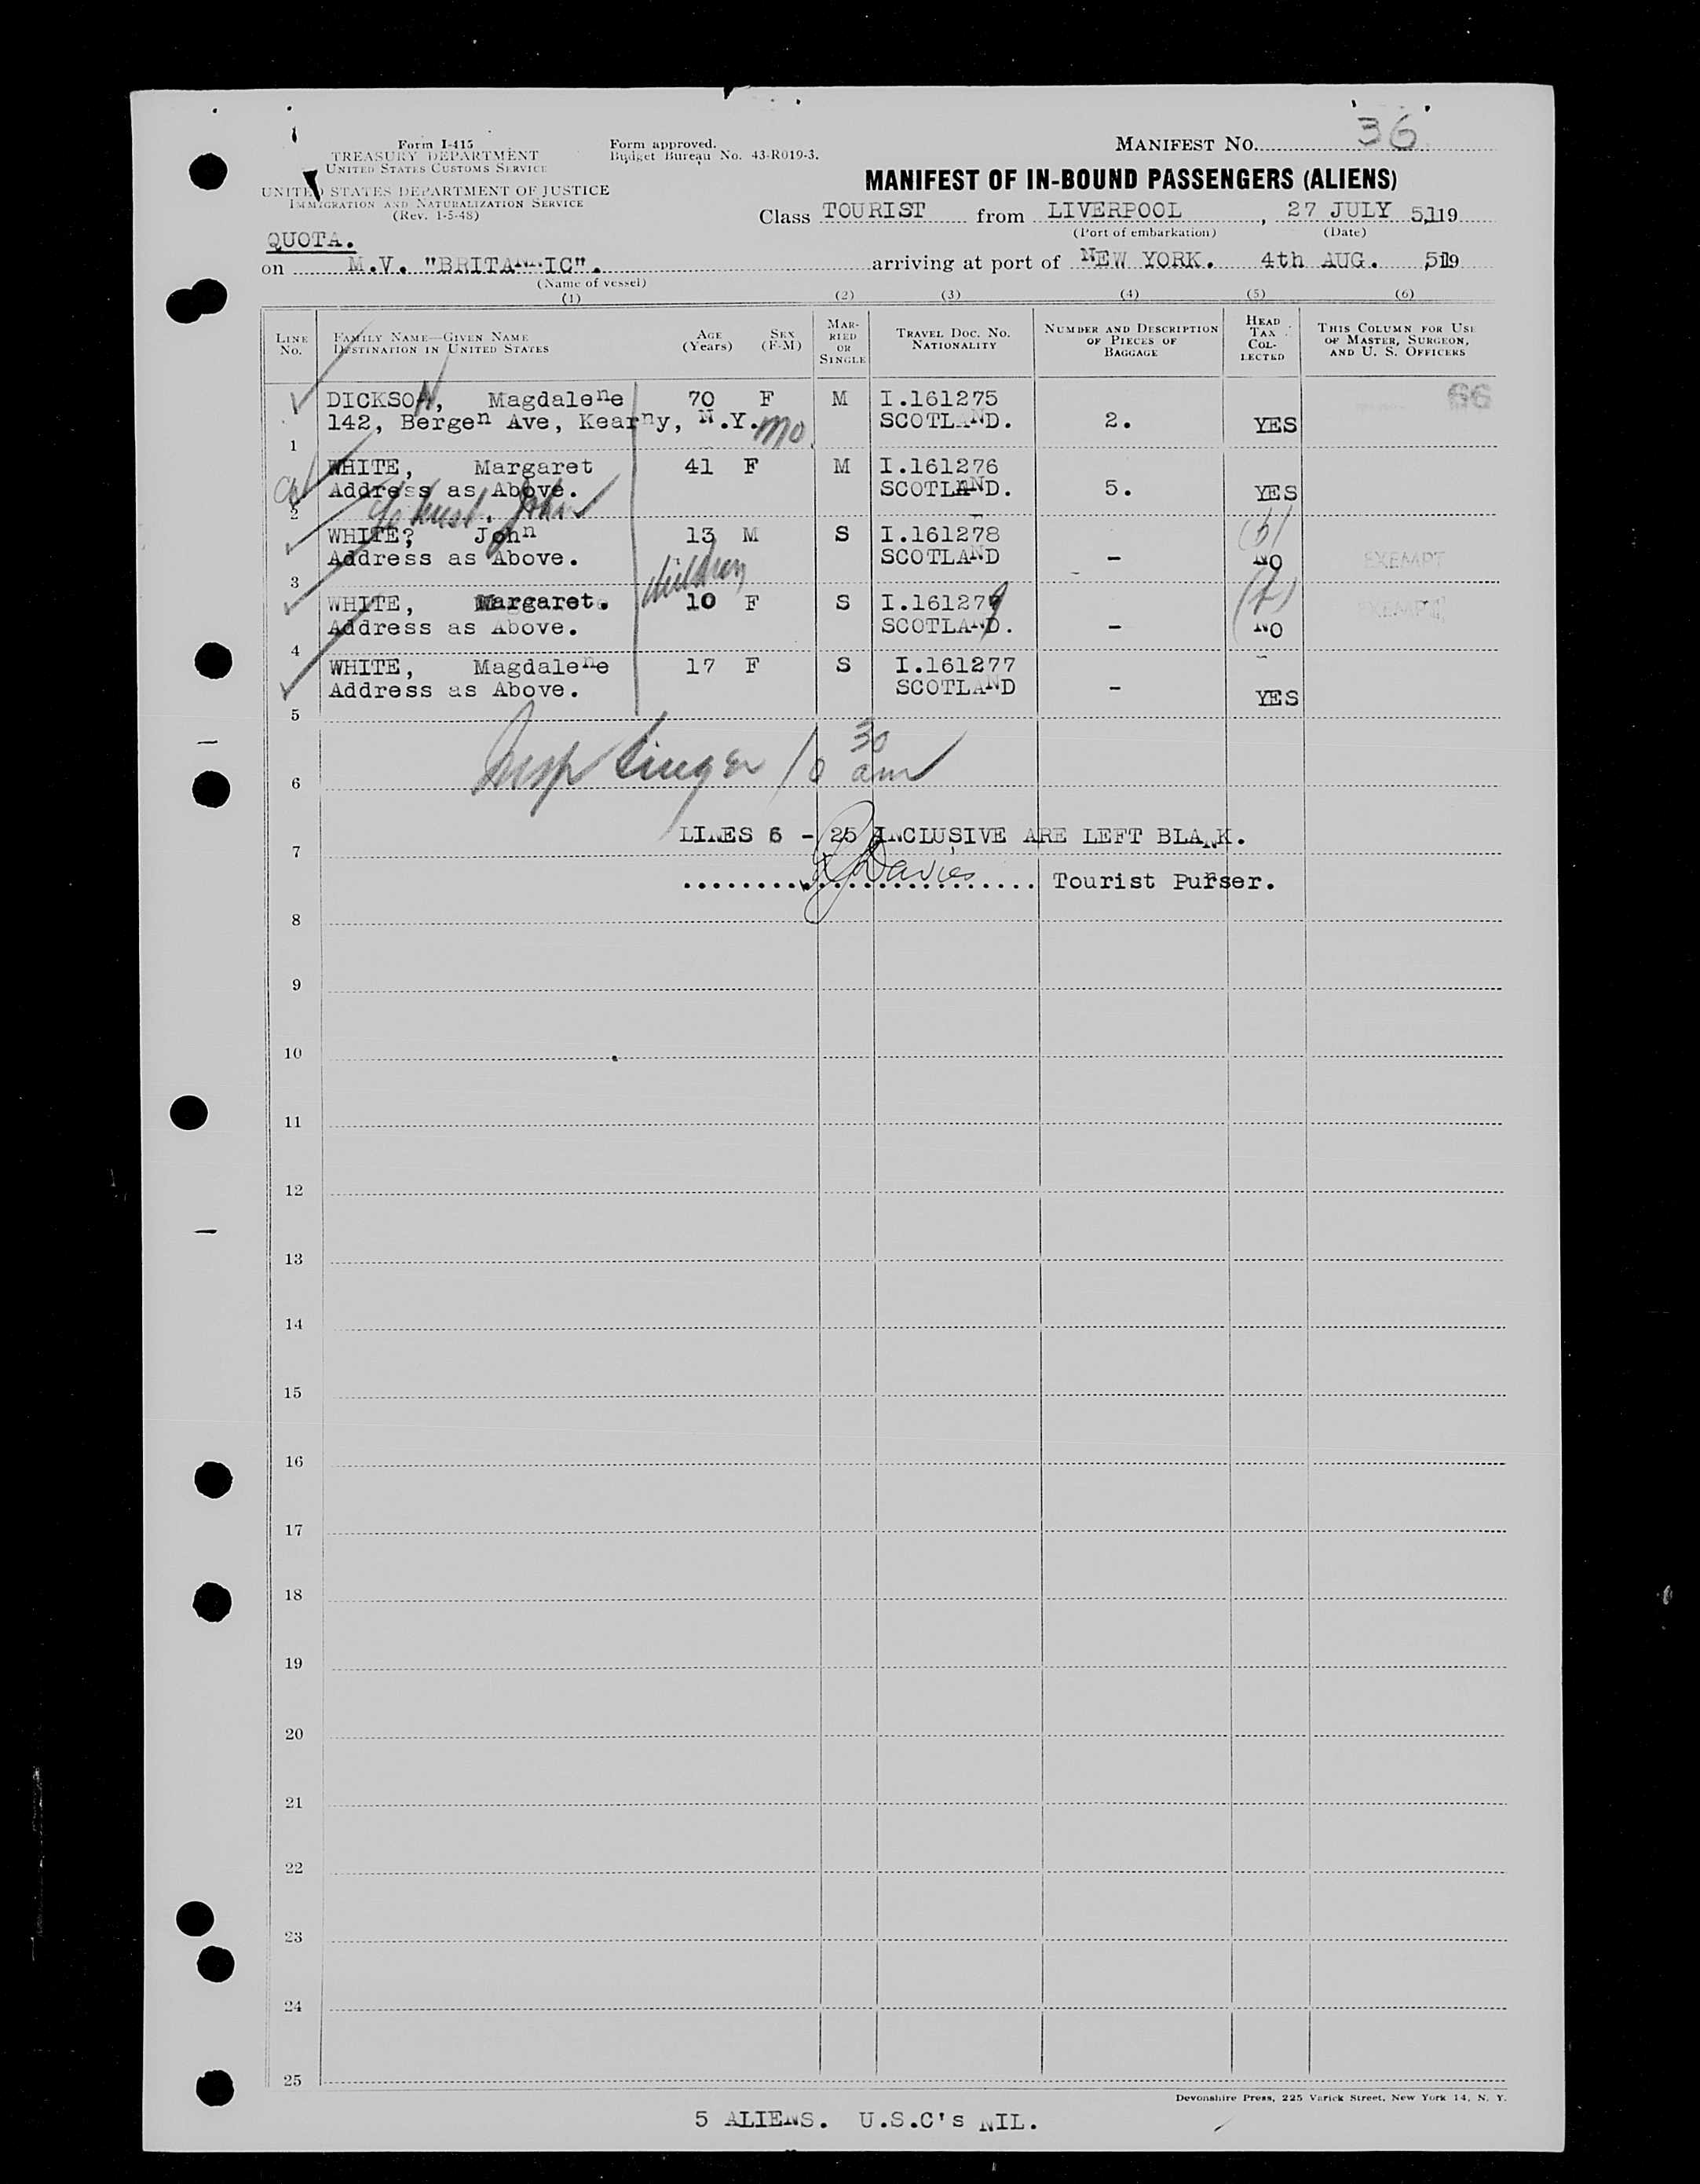 Form I-415
TREASURY DEPARTMENT
UNITED STATES CUSTOMS SERVICE
UNITED STATES DEPARTMENT OF JUSTICE
IMMIGRATION AND NATURALIZATION SERVICE
(Rev. 1-5-48)
Form approved.
Budget Bureau No. 43-R019-3.
MANIFEST NO. 36
MANIFEST OF IN-BOUND PASSENGERS (ALIENS)
Class TOURIST from LIVERPOOL, 27 JULY 51 19
(Port of embarkation) (Date)
QUOTA.
on M.V. "BRITANNIC". arriving at port of NEW YORK. 4th AUG. 51 19
(Name of vessel)
(1) (2) (3) (4) (5) (6)
LINE NO. FAMILY NAME—GIVEN NAME DESTINATION IN UNITED STATES AGE (Years) SEX (F-M) MARRIED OR SINGLE TRAVEL DOC. NO. NATIONALITY NUMBER AND DESCRIPTION OF PIECES OF BAGGAGE HEAD TAX COLLECTED THIS COLUMN FOR USE OF MASTER, SURGEON, AND U. S. OFFICERS
DICKSON, Magdalene 70 F M I.161275 66
142, Bergen Ave, Kearny, N.Y. mo SCOTLAND. 2. YES
1
WHITE, Margaret 41 F M I.161276
Address as Above. SCOTLAND. 5. YES
to husb. John
2
WHITE? John 13 M S I.161278
Address as Above. SCOTLAND - NO EXEMPT
children
3
WHITE, Margaret. 10 F S I.161279 EXEMPT
Address as Above. SCOTLAND. - NO
4
WHITE, Magdalene 17 F S I.161277
Address as Above. SCOTLAND - YES
5
Insp Singer 10 30 am
6
LINES 6 - 25 INCLUSIVE ARE LEFT BLANK.
7
Davies Tourist Purser.
8
9
10
11
12
13
14
15
16
17
18
19
20
21
22
23
24
25
Devonshire Press, 225 Varick Street, New York 14, N. Y.
5 ALIENS. U.S.C's NIL.